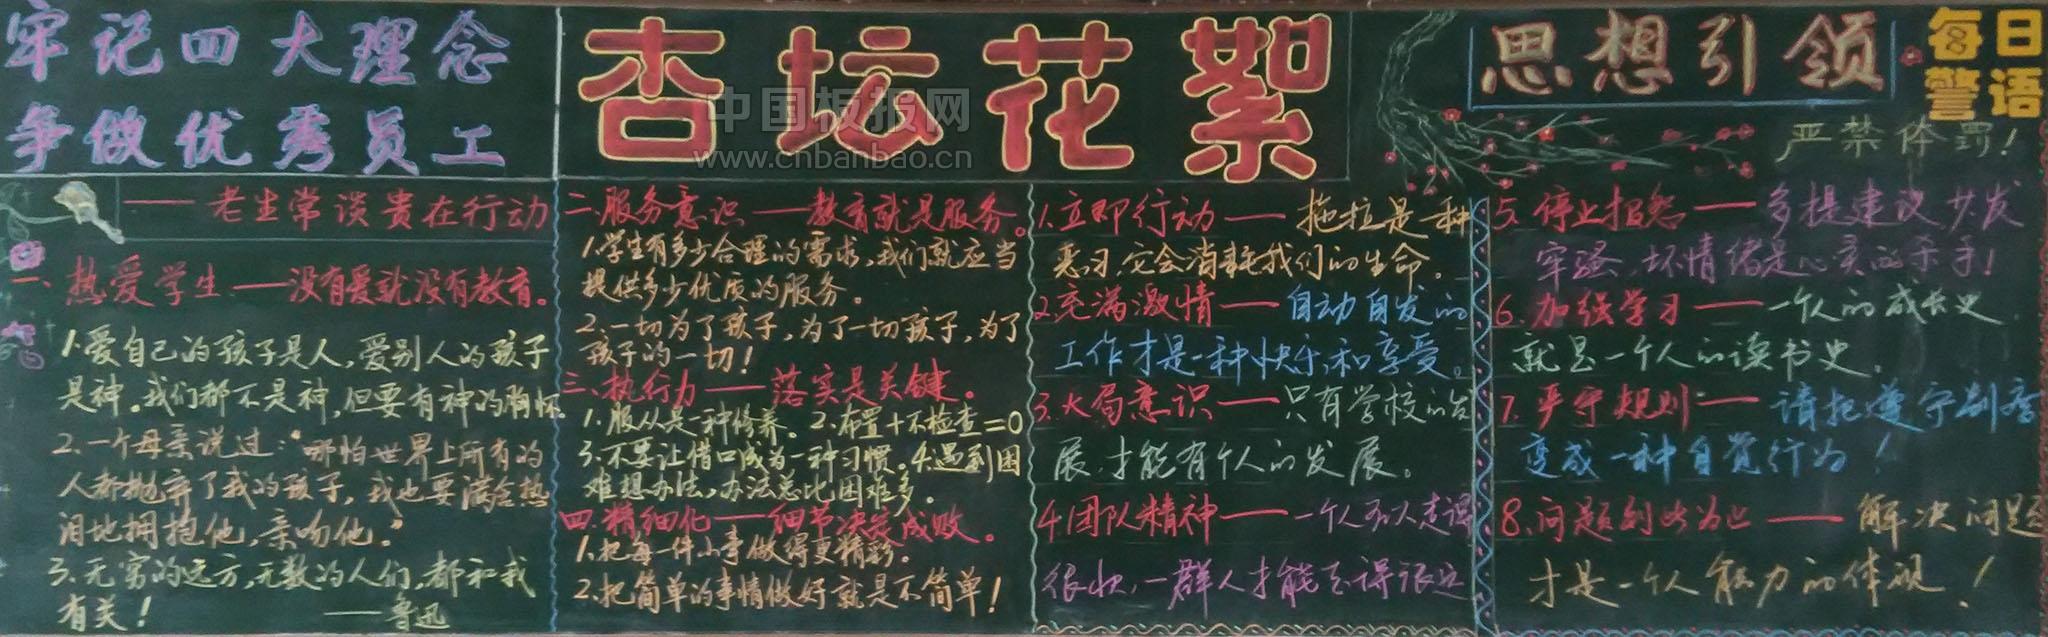 牢记四大理念
争做优秀员工
——老生常谈贵在行动
一、热爱学生——没有爱就没有教育。
1.爱自己的孩子是人,爱别人的孩子
是神。我们都不是神,但要有神的胸怀.
2.一个母亲说过:“哪怕世界上所有的
人都抛弃了我的孩子,我也要满含热
泪地拥抱他,亲吻他。”
3.无穷的远方,无数的人们,都和我
有关!
——鲁迅
杏坛花絮
中国板报网
www.cnbanbao.cn
二.服务意识——教育就是服务。
1.学生有多少合理的需求,我们就应当
提供多少优质的服务。
2.一切为了孩子,为了一切孩子,为了
孩子的一切!
三.执行力——落实是关键。
1.服从是一种修养。2.布置+不检查=0
3.不要让借口成为一种习惯。4.遇到困
难想办法,办法总比困难多。
四.精细化——细节决定成败。
1.把每一件小事做得更精彩。
2.把简单的事情做好就是不简单!
1.立即行动——拖拉是一种
恶习,它会消耗我们的生命。
2.充满激情——自动自发的
工作才是一种快乐和享受。
3.大局意识——只有学校的发
展,才能有个人的发展。
4.团队精神——一个人可以走得
很快,一群人才能走得很远
思想引领
每日
警语
严禁体罚!
5.停止抱怨——多提建议,少发
牢骚,坏情绪是心灵的杀手!
6.加强学习——一个人的成长史
就是一个人的读书史。
7.严守规则——请把遵守制度
变成一种自觉行为!
8.问题到此为止——解决问题
才是一个人能力的体现!